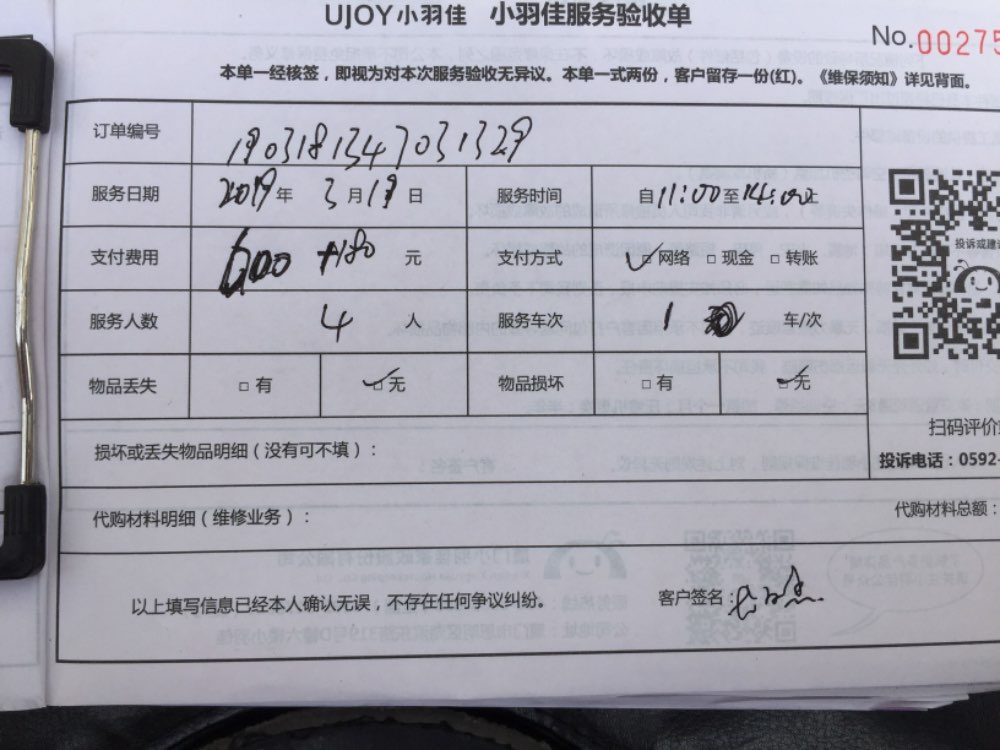 UJOY小羽佳 小羽佳服务验收单
No.00275
本单一经核签，即视为对本次服务验收无异议。本单一式两份，客户留存一份(红)。《维保须知》详见背面。
订单编号 1903181347031329
服务日期 2019年 3月19日 服务时间 自11:00至14:00止
支付费用 600 +180 元 支付方式 ✓□网络 □现金 □转账
投诉或建议
服务人数 4 人 服务车次 1 车/次
物品丢失 □有 ✓□无 物品损坏 □有 ✓□无
扫码评价
损坏或丢失物品明细（没有可不填）：
投诉电话：0592-
代购材料明细（维修业务）： 代购材料总额：
以上填写信息已经本人确认无误，不存在任何争议纠纷。 客户签名：